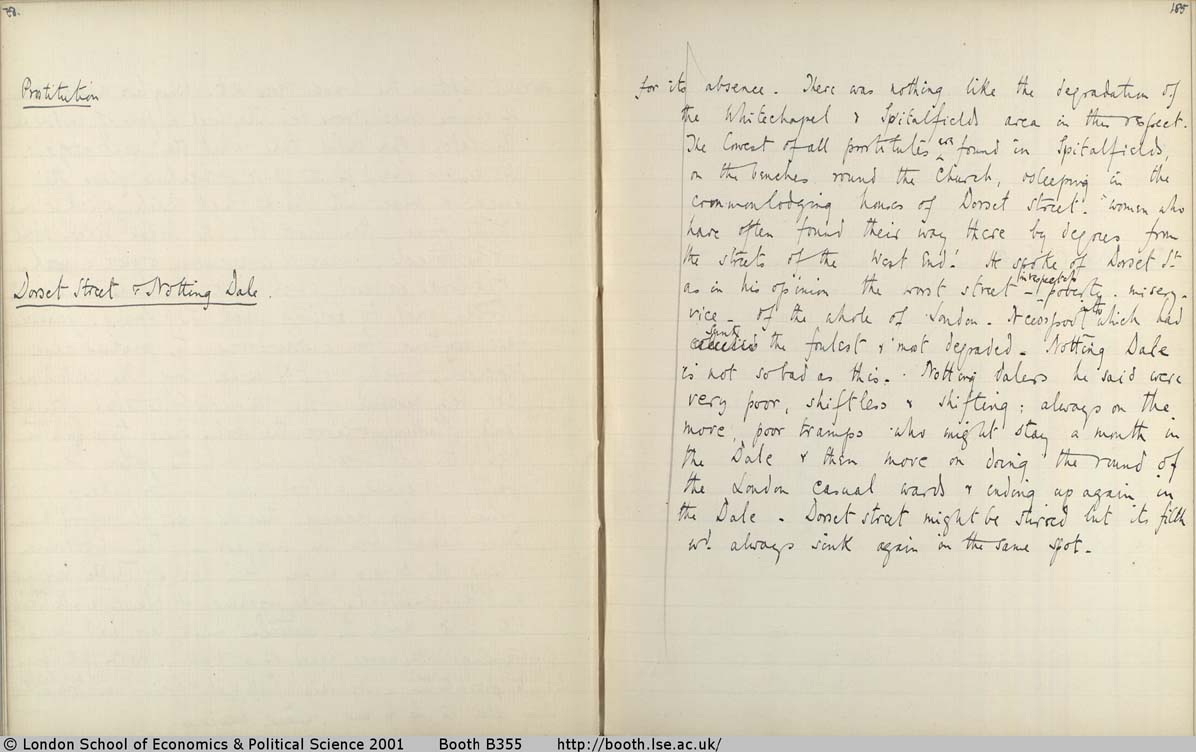 38.
Prostitution
Dorset Street & Notting Dale.
185
for its absence. There was nothing like the degradation of
the Whitechapel & Spitalfields area in this respect.
The lowest of all prostitutes are found in Spitalfields,
on the benches round the Church, or sleeping in the
common lodging houses of Dorset Street. "women who
have often found their way there by degrees from
the streets of the West End". He spoke of Dorset St
as in his opinion the worst street in respect of poverty - misery -
vice - of the whole of London. A cesspool into which had
sunk the foulest & most degraded. Notting Dale
is not so bad as this. Notting dalers he said were
very poor, shiftless & shifting; always on the
move, poor tramps who might stay a month in
the Dale & then move on doing the round of
the London casual wards & ending up again in
the Dale - Dorset street might be stirred but its filth
wd. always sink again in the same spot.
© London School of Economics & Political Science 2001 Booth B355 http://booth.lse.ac.uk/